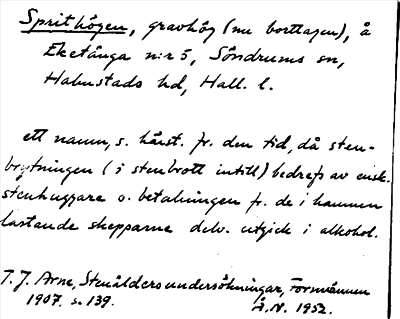 Sprithögen, gravhög (nu borttagen), å
Eketånga n:r 5, Söndrums sn,
Halmstads hd, Hall. l.
ett namn, s. härst. fr. den tid, då sten-
brytningen (i stenbrott intill) bedrefs av ensk.
stenhuggare o. betalningen fr. de i hamnen
lastande skepparne delv. utgick i alkohol.
T. J. Arne, Stenåldersundersökningar, Fornvännen
1907. s. 139.
Å. N. 1952.